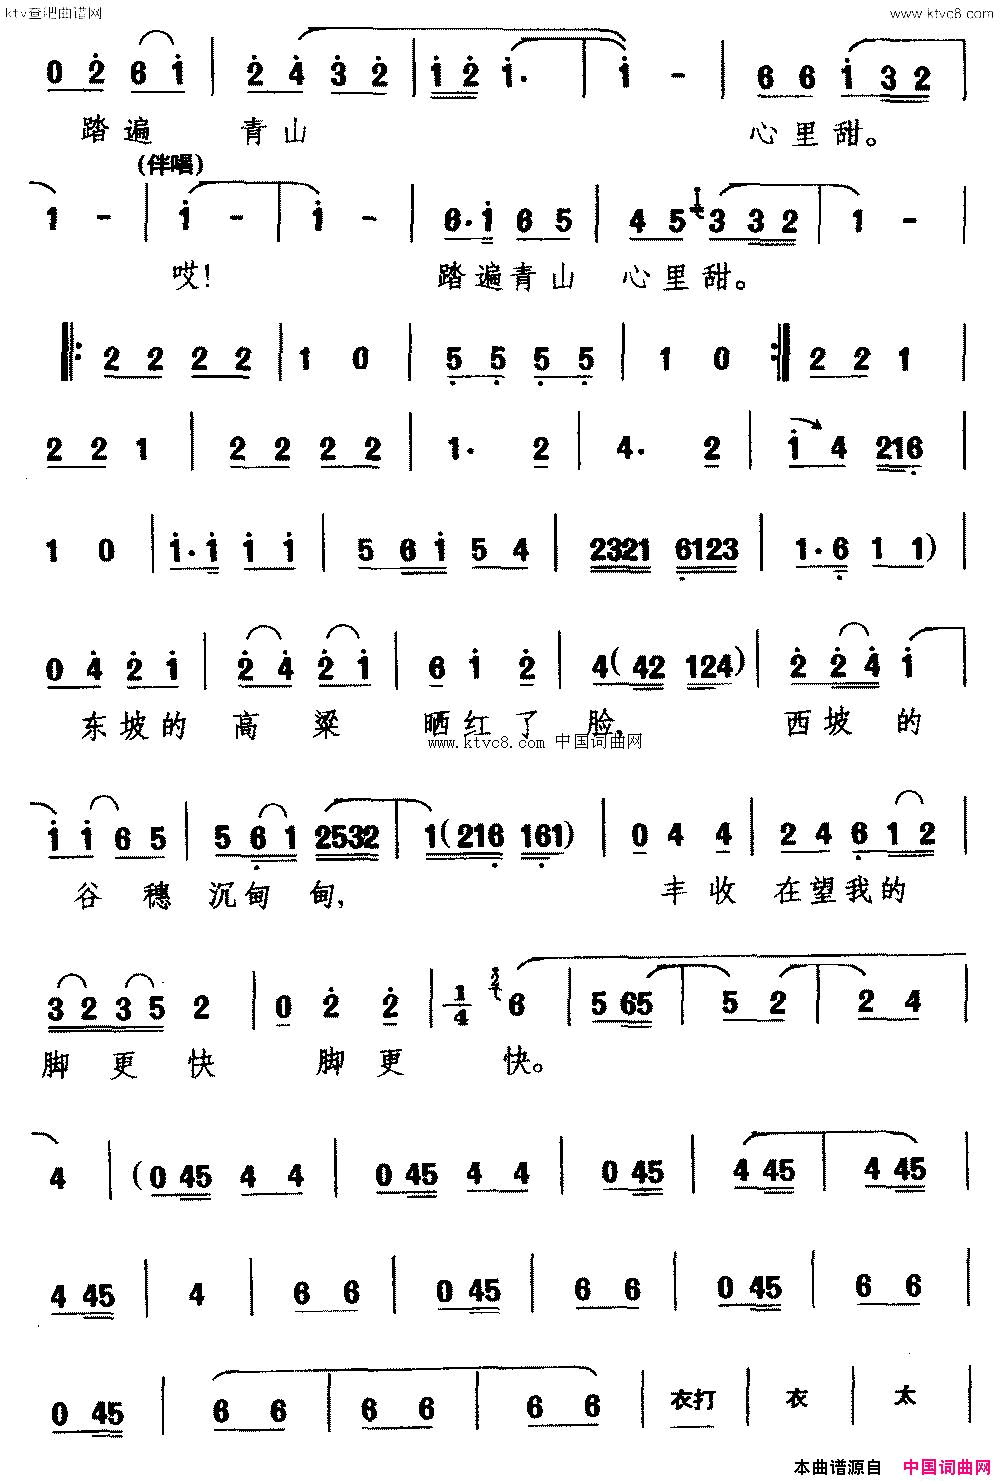 ktv查吧曲谱网 www.ktvc8.com
0 2 6 1 | 2 4 3 2 | 1 2 1· | 1 - | 6 6 1 3 2 |
踏遍 青山 心里甜。
(伴唱)
1 - | 1 - | 1 - | 6·1 6 5 | 4 5 3 3 2 | 1 - |
哎! 踏遍青山 心里甜。
‖: 2 2 2 2 | 1 0 | 5 5 5 5 | 1 0 :‖ 2 2 1 |
2 2 1 | 2 2 2 2 | 1· 2 | 4· 2 | 1 4 216 |
1 0 | 1·1 1 1 | 5 6 1 5 4 | 2321 6123 | 1·6 1 1) |
0 4 2 1 | 2 4 2 1 | 6 1 2 | 4 (42 124) | 2 2 4 1 |
东坡的 高粱 晒红了 脸, 西坡的
www.ktvc8.com 中国词曲网
1 1 6 5 | 5 6 1 2532 | 1 (216 161) | 0 4 4 | 2 4 6 1 2 |
谷穗 沉甸甸, 丰收 在望我的
3 2 3 5 2 | 0 2 2 | 1/4 6 | 5 65 | 5 2 | 2 4 |
脚更快 脚更 快。
4 | (0 45 4 4 | 0 45 4 4 | 0 45 | 4 45 | 4 45 |
4 45 | 4 | 6 6 | 0 45 | 6 6 | 0 45 | 6 6 |
0 45 | 6 6 | 6 6 | 6 6 | 衣打 | 衣 | 太 |
本曲谱源自 中国词曲网